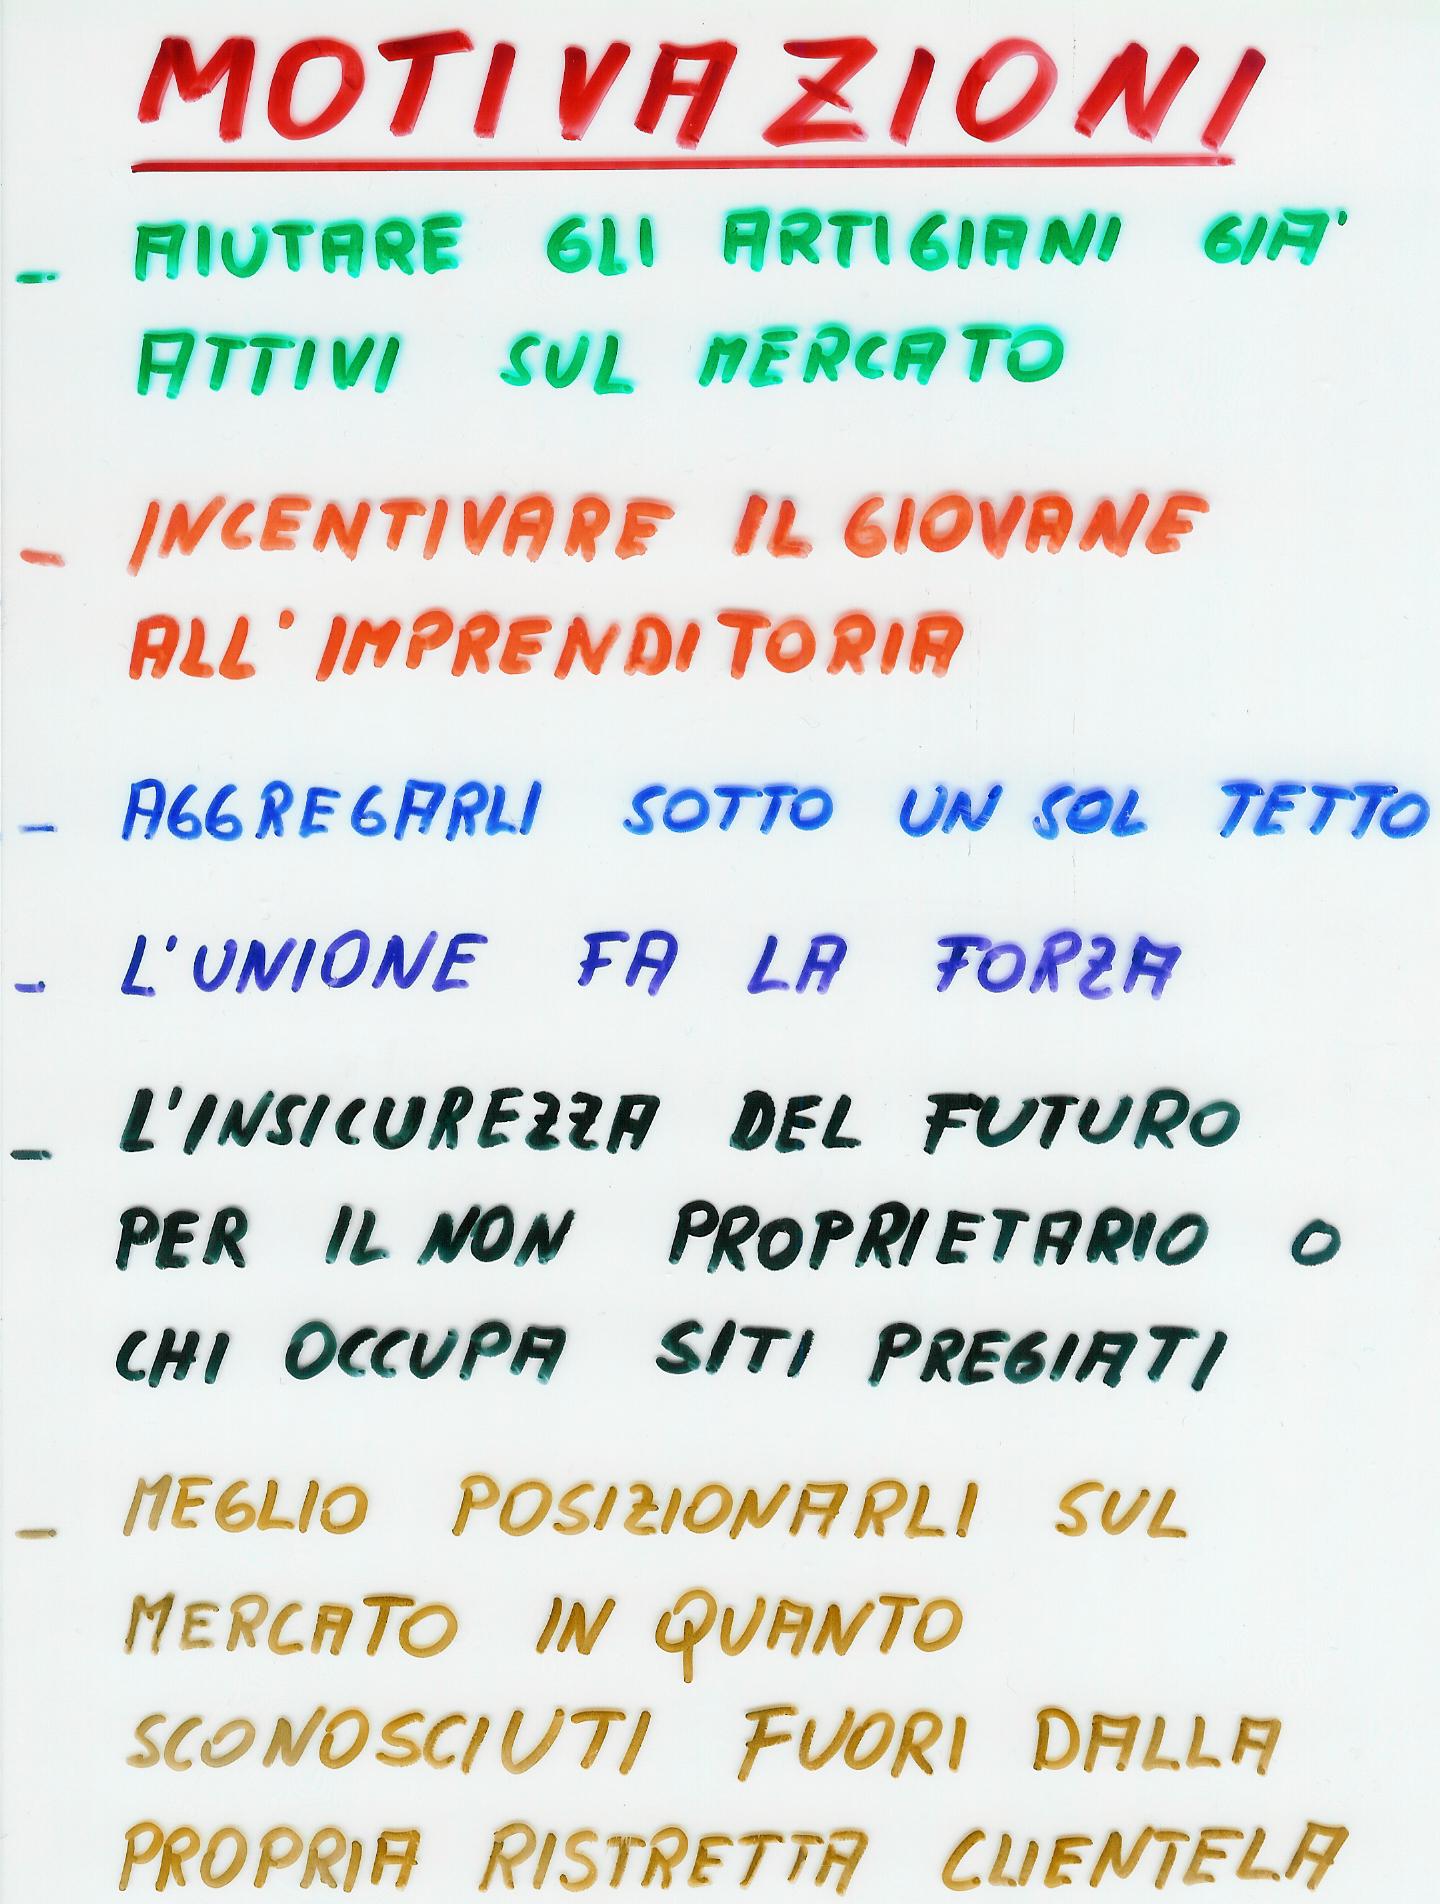 MOTIVAZIONI
- AIUTARE GLI ARTIGIANI GIA'
ATTIVI SUL MERCATO
- INCENTIVARE IL GIOVANE
ALL'IMPRENDITORIA
- AGGREGARLI SOTTO UN SOL TETTO
- L'UNIONE FA LA FORZA
- L'INSICUREZZA DEL FUTURO
PER IL NON PROPRIETARIO O
CHI OCCUPA SITI PREGIATI
- MEGLIO POSIZIONARLI SUL
MERCATO IN QUANTO
SCONOSCIUTI FUORI DALLA
PROPRIA RISTRETTA CLIENTELA